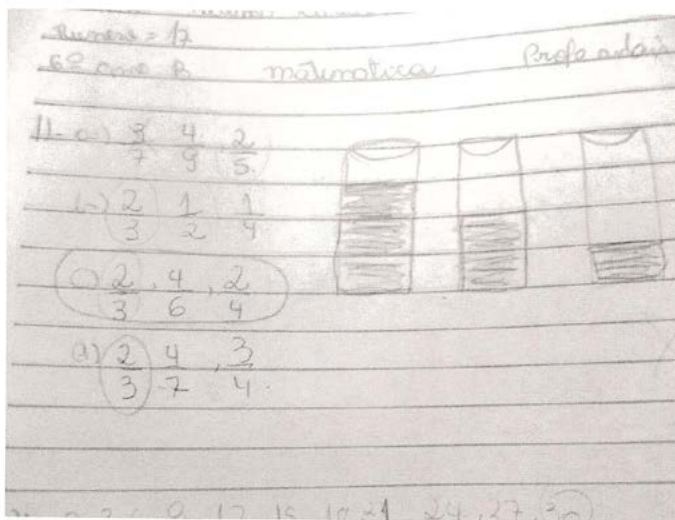 Numero = 17
6º ano B matematica Profe
11- a) 3/7 4/9 2/5
b) 2/3 1/2 1/4
c) 2/3, 4/6, 2/4
d) 2/3 4/7, 3/4.
24, 27, 30